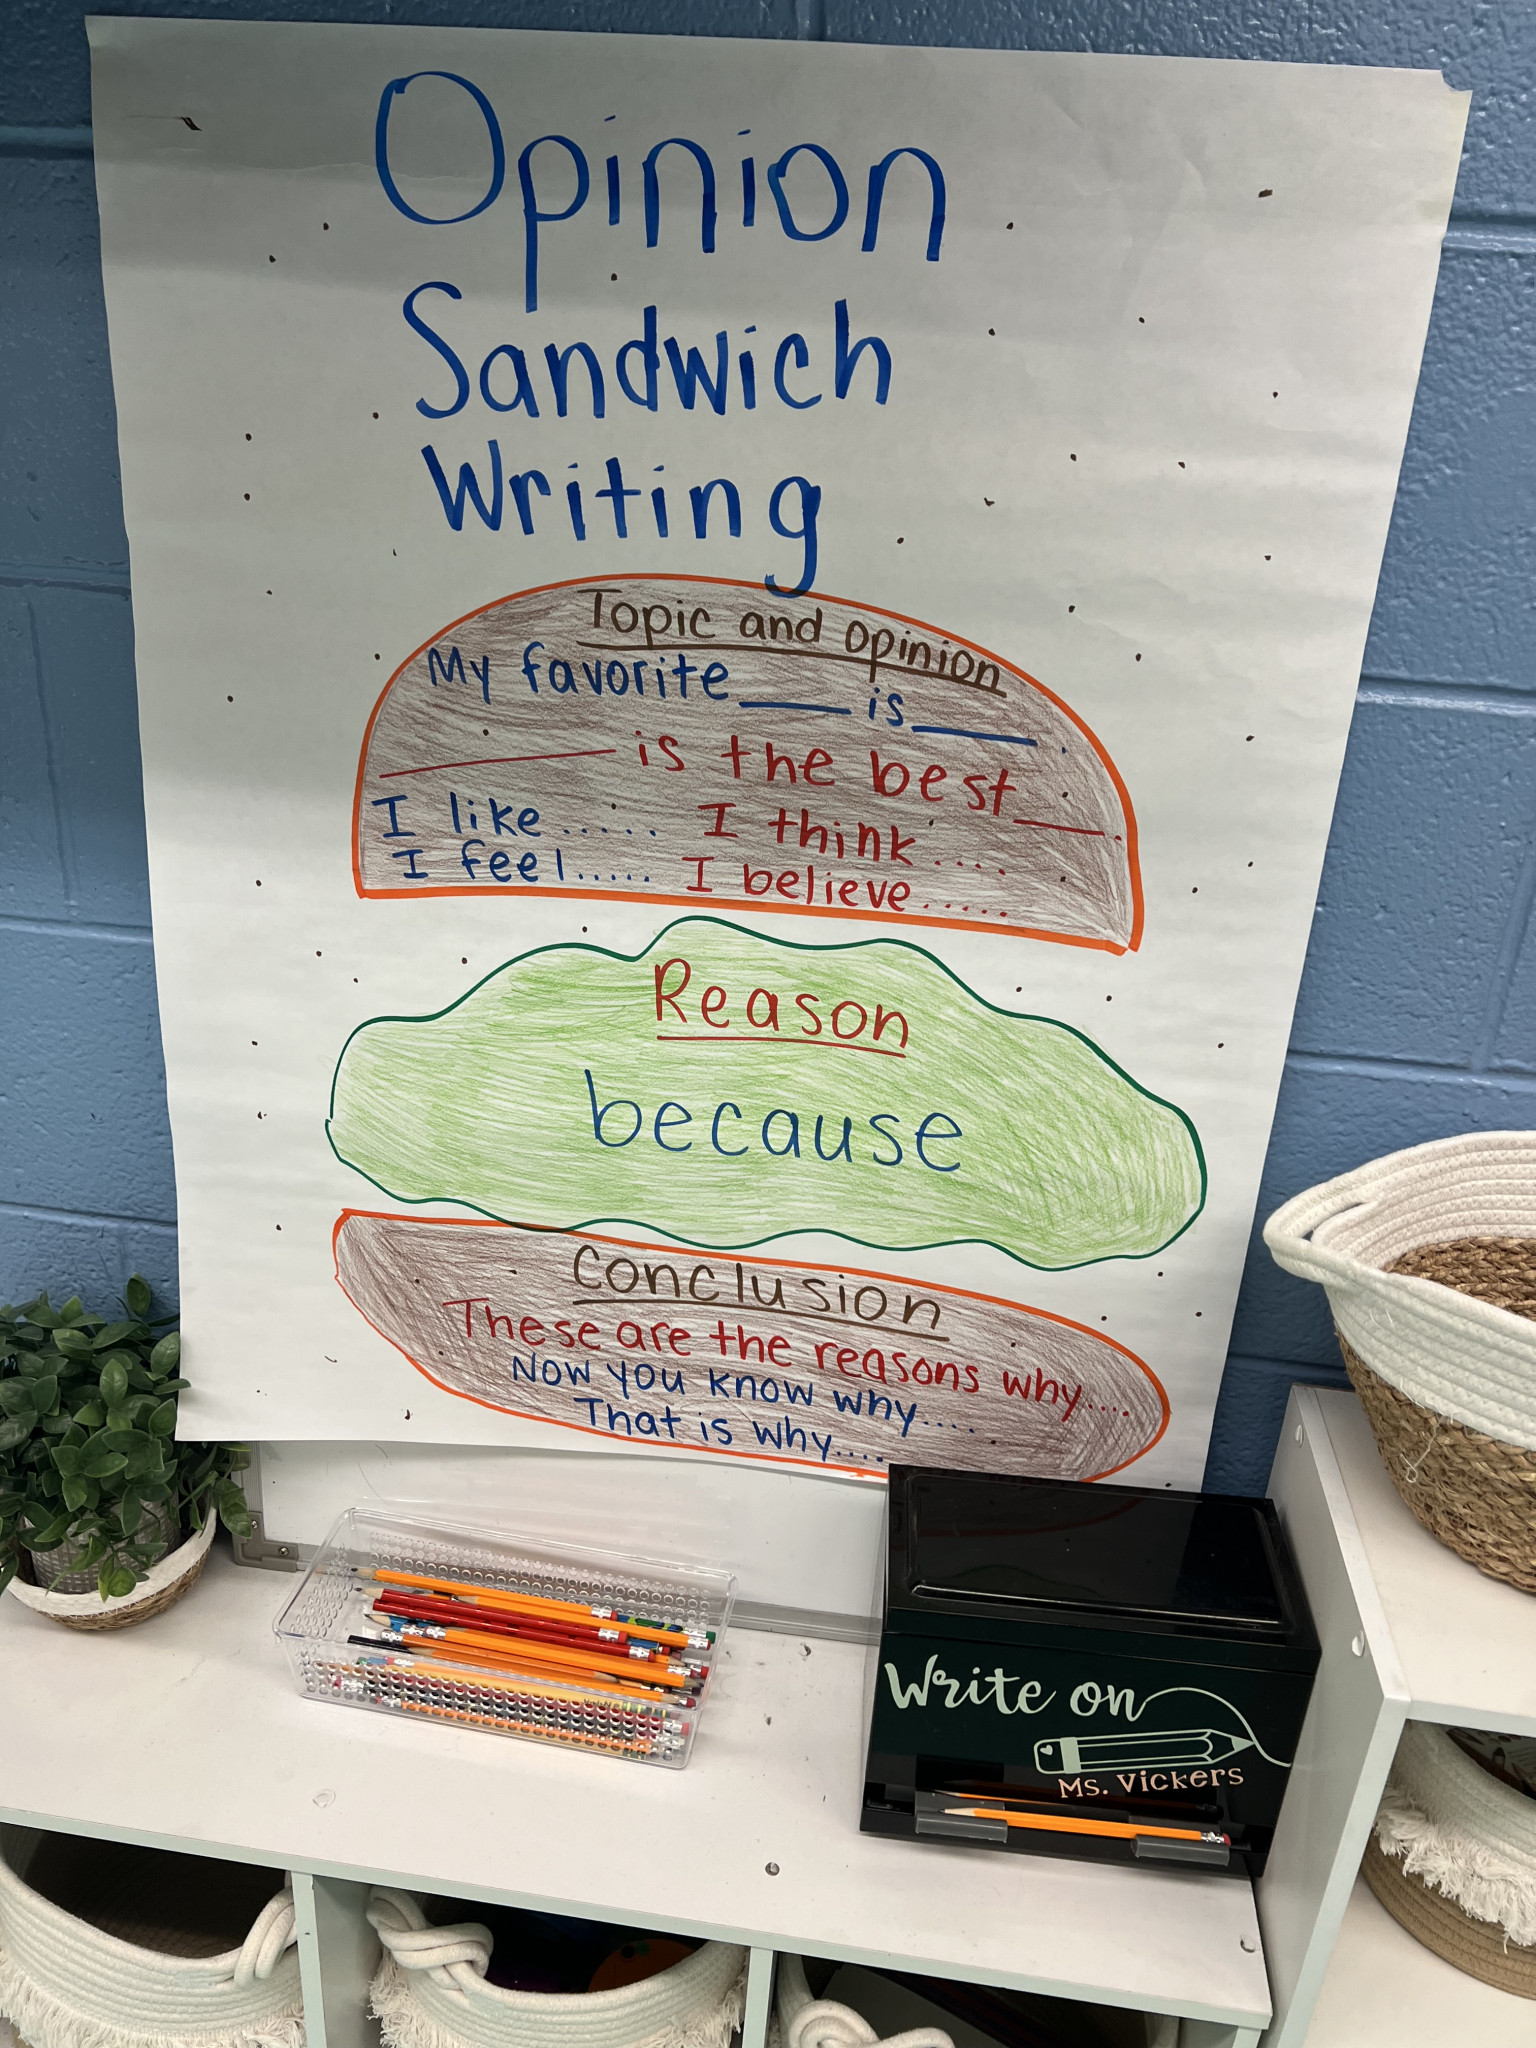 Opinion
Sandwich
Writing
Topic and opinion
My favorite ____ is ____.
____ is the best ____.
I like ..... I think ....
I feel ..... I believe .....
Reason
because
Conclusion
These are the reasons why....
Now you know why....
That is why....
Write on
Ms. Vickers